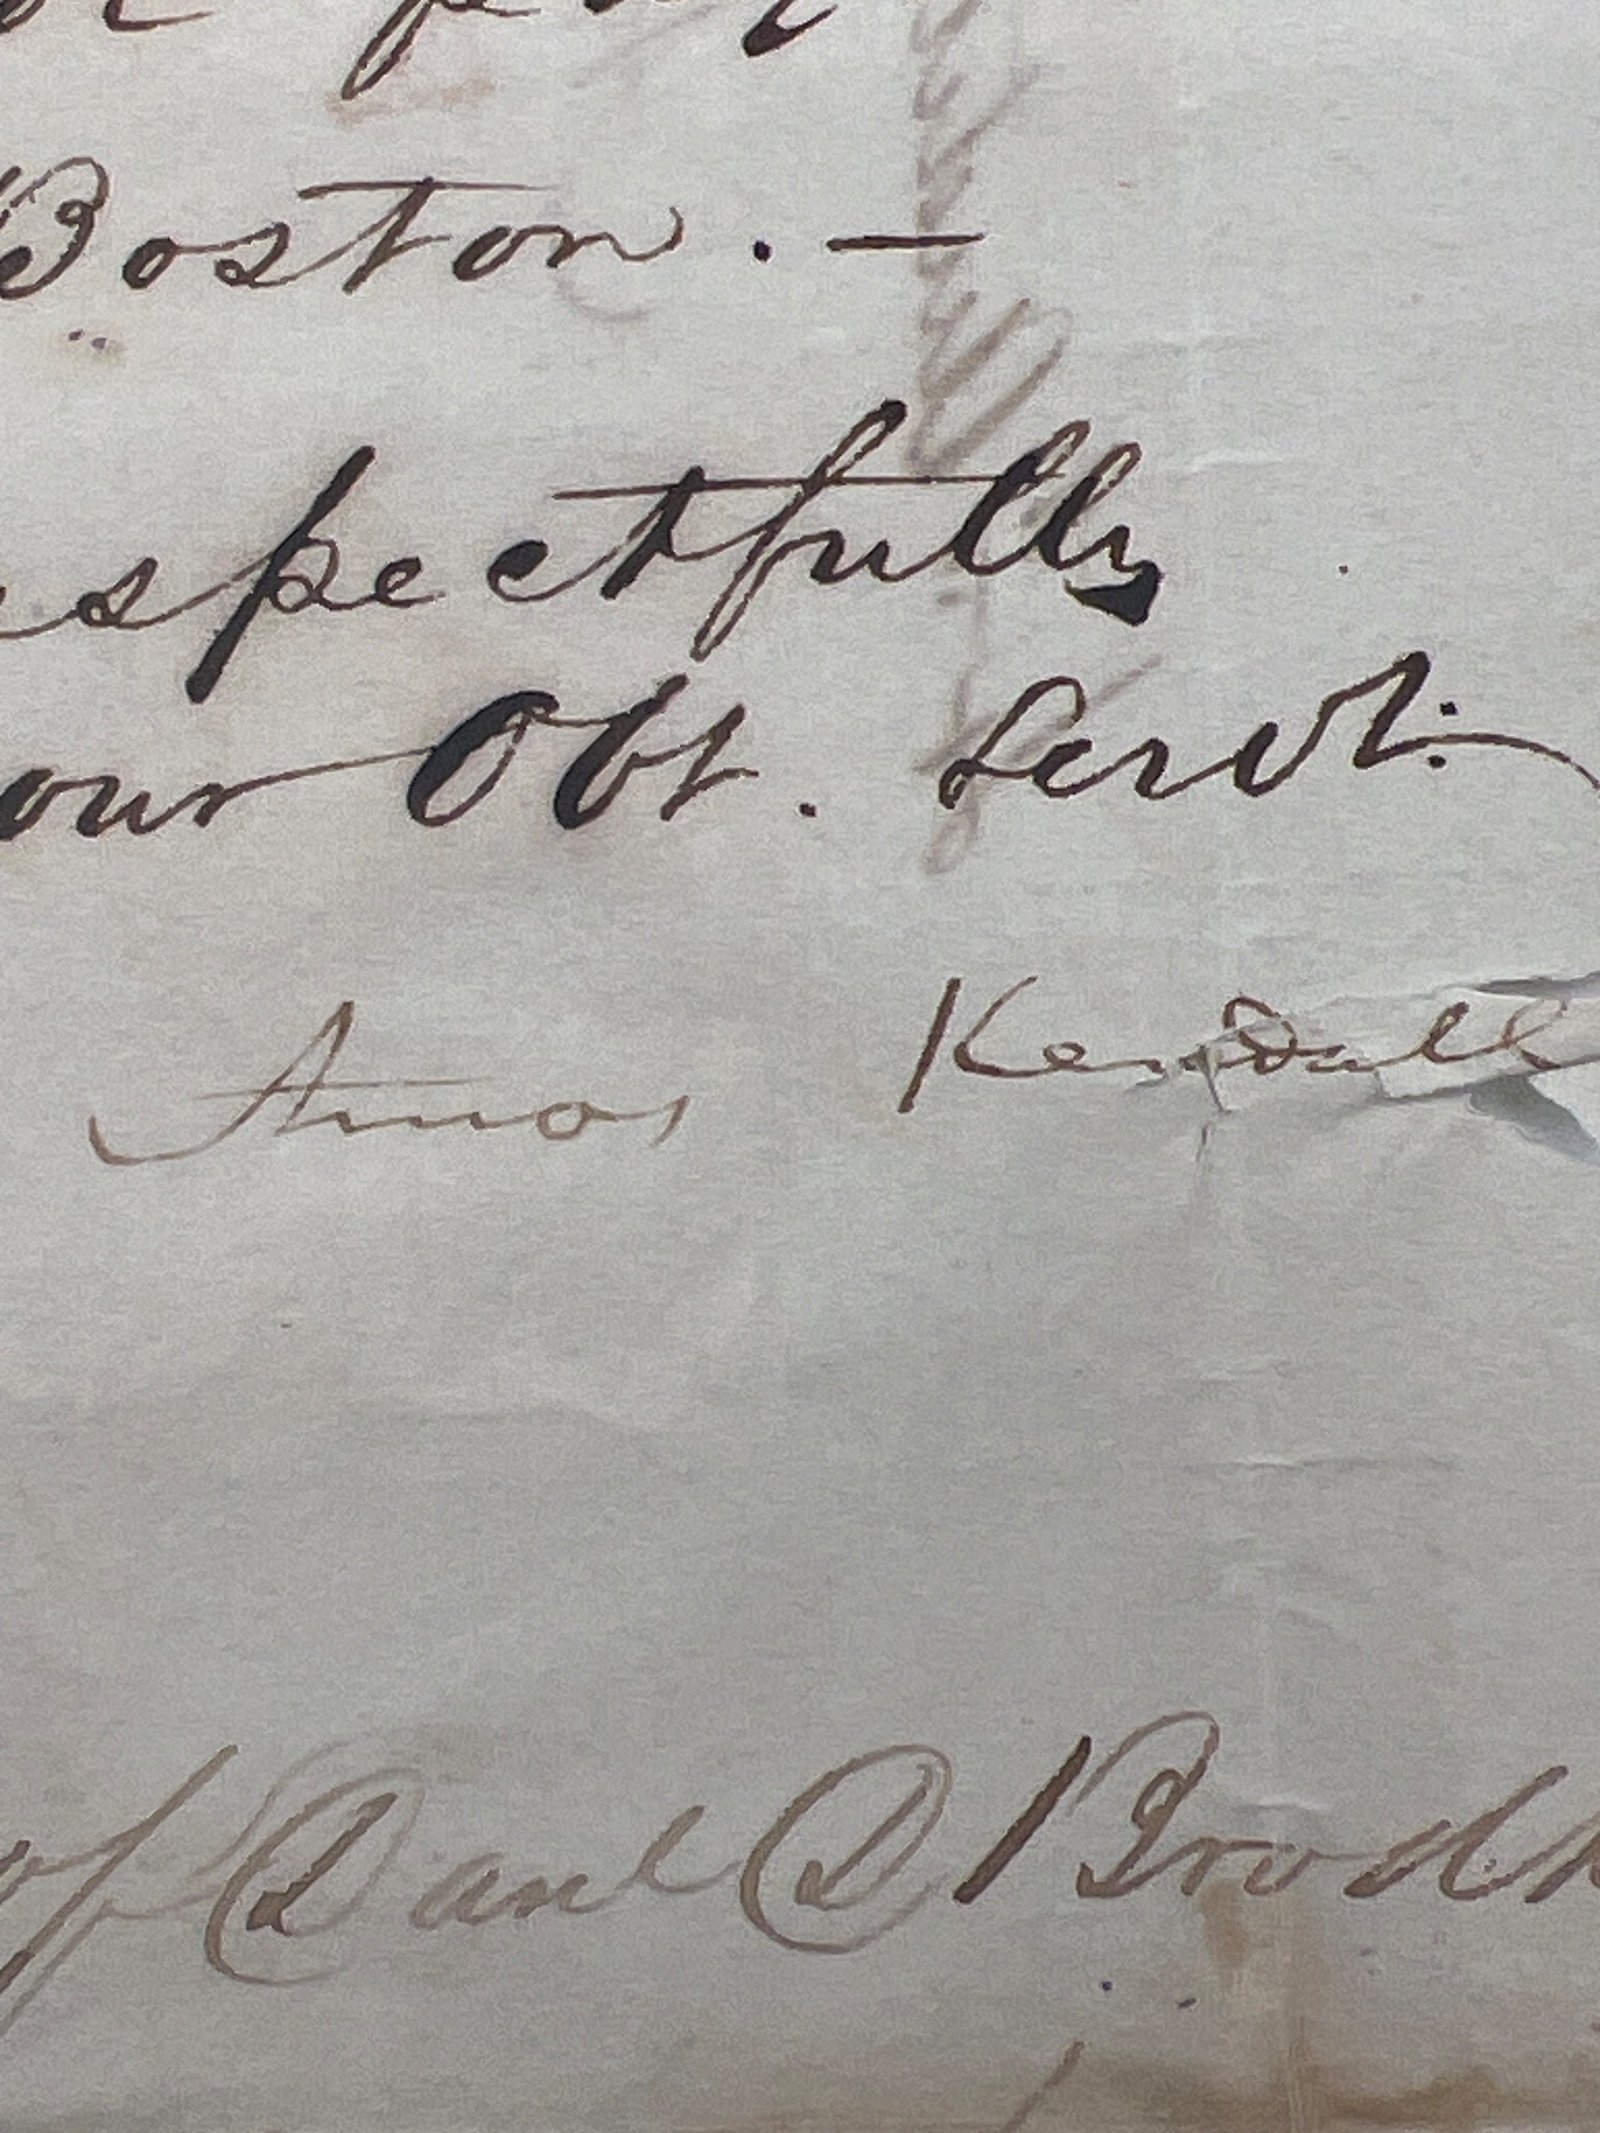 Boston. —
espectfully
our Obt. Servt.
Amos Kendall
of Danl D Brodh